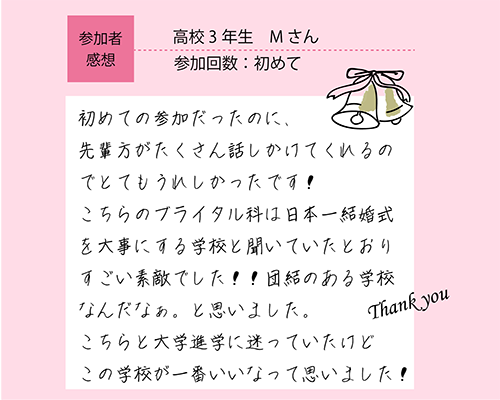 参加者
感想
高校3年生　Mさん
参加回数：初めて
初めての参加だったのに、
先輩方がたくさん話しかけてくれるの
でとてもうれしかったです！
こちらのブライタル科は日本一結婚式
を大事にする学校と聞いていたとおり
すごい素敵でした！！団結のある学校
なんだなぁ。と思いました。
こちらと大学進学に迷っていたけど
この学校が一番いいなって思いました！
Thank you